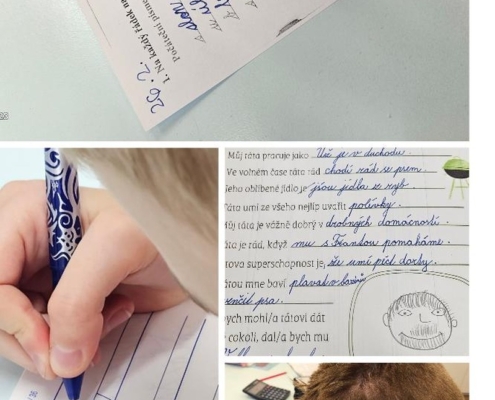 26. 2.
1. Na každý řádek na
Počáteční písme
Můj táta pracuje jako Už je v duchodu.
Ve volném čase táta rád chodí rád se psem.
Jeho oblíbené jídlo je jsou jedla z ryb.
Táta umí ze všeho nejlíp uvařit polévky.
Můj táta je vážně dobrý v drobných domácností.
áta je rád, když mu s Frantou pomaháme.
tova superschopnost je, že umí píct dorty.
átou mne baví plavat v bazén
venčit psa.
bych mohl/a tátovi dát
cokoli, dal/a bych mu